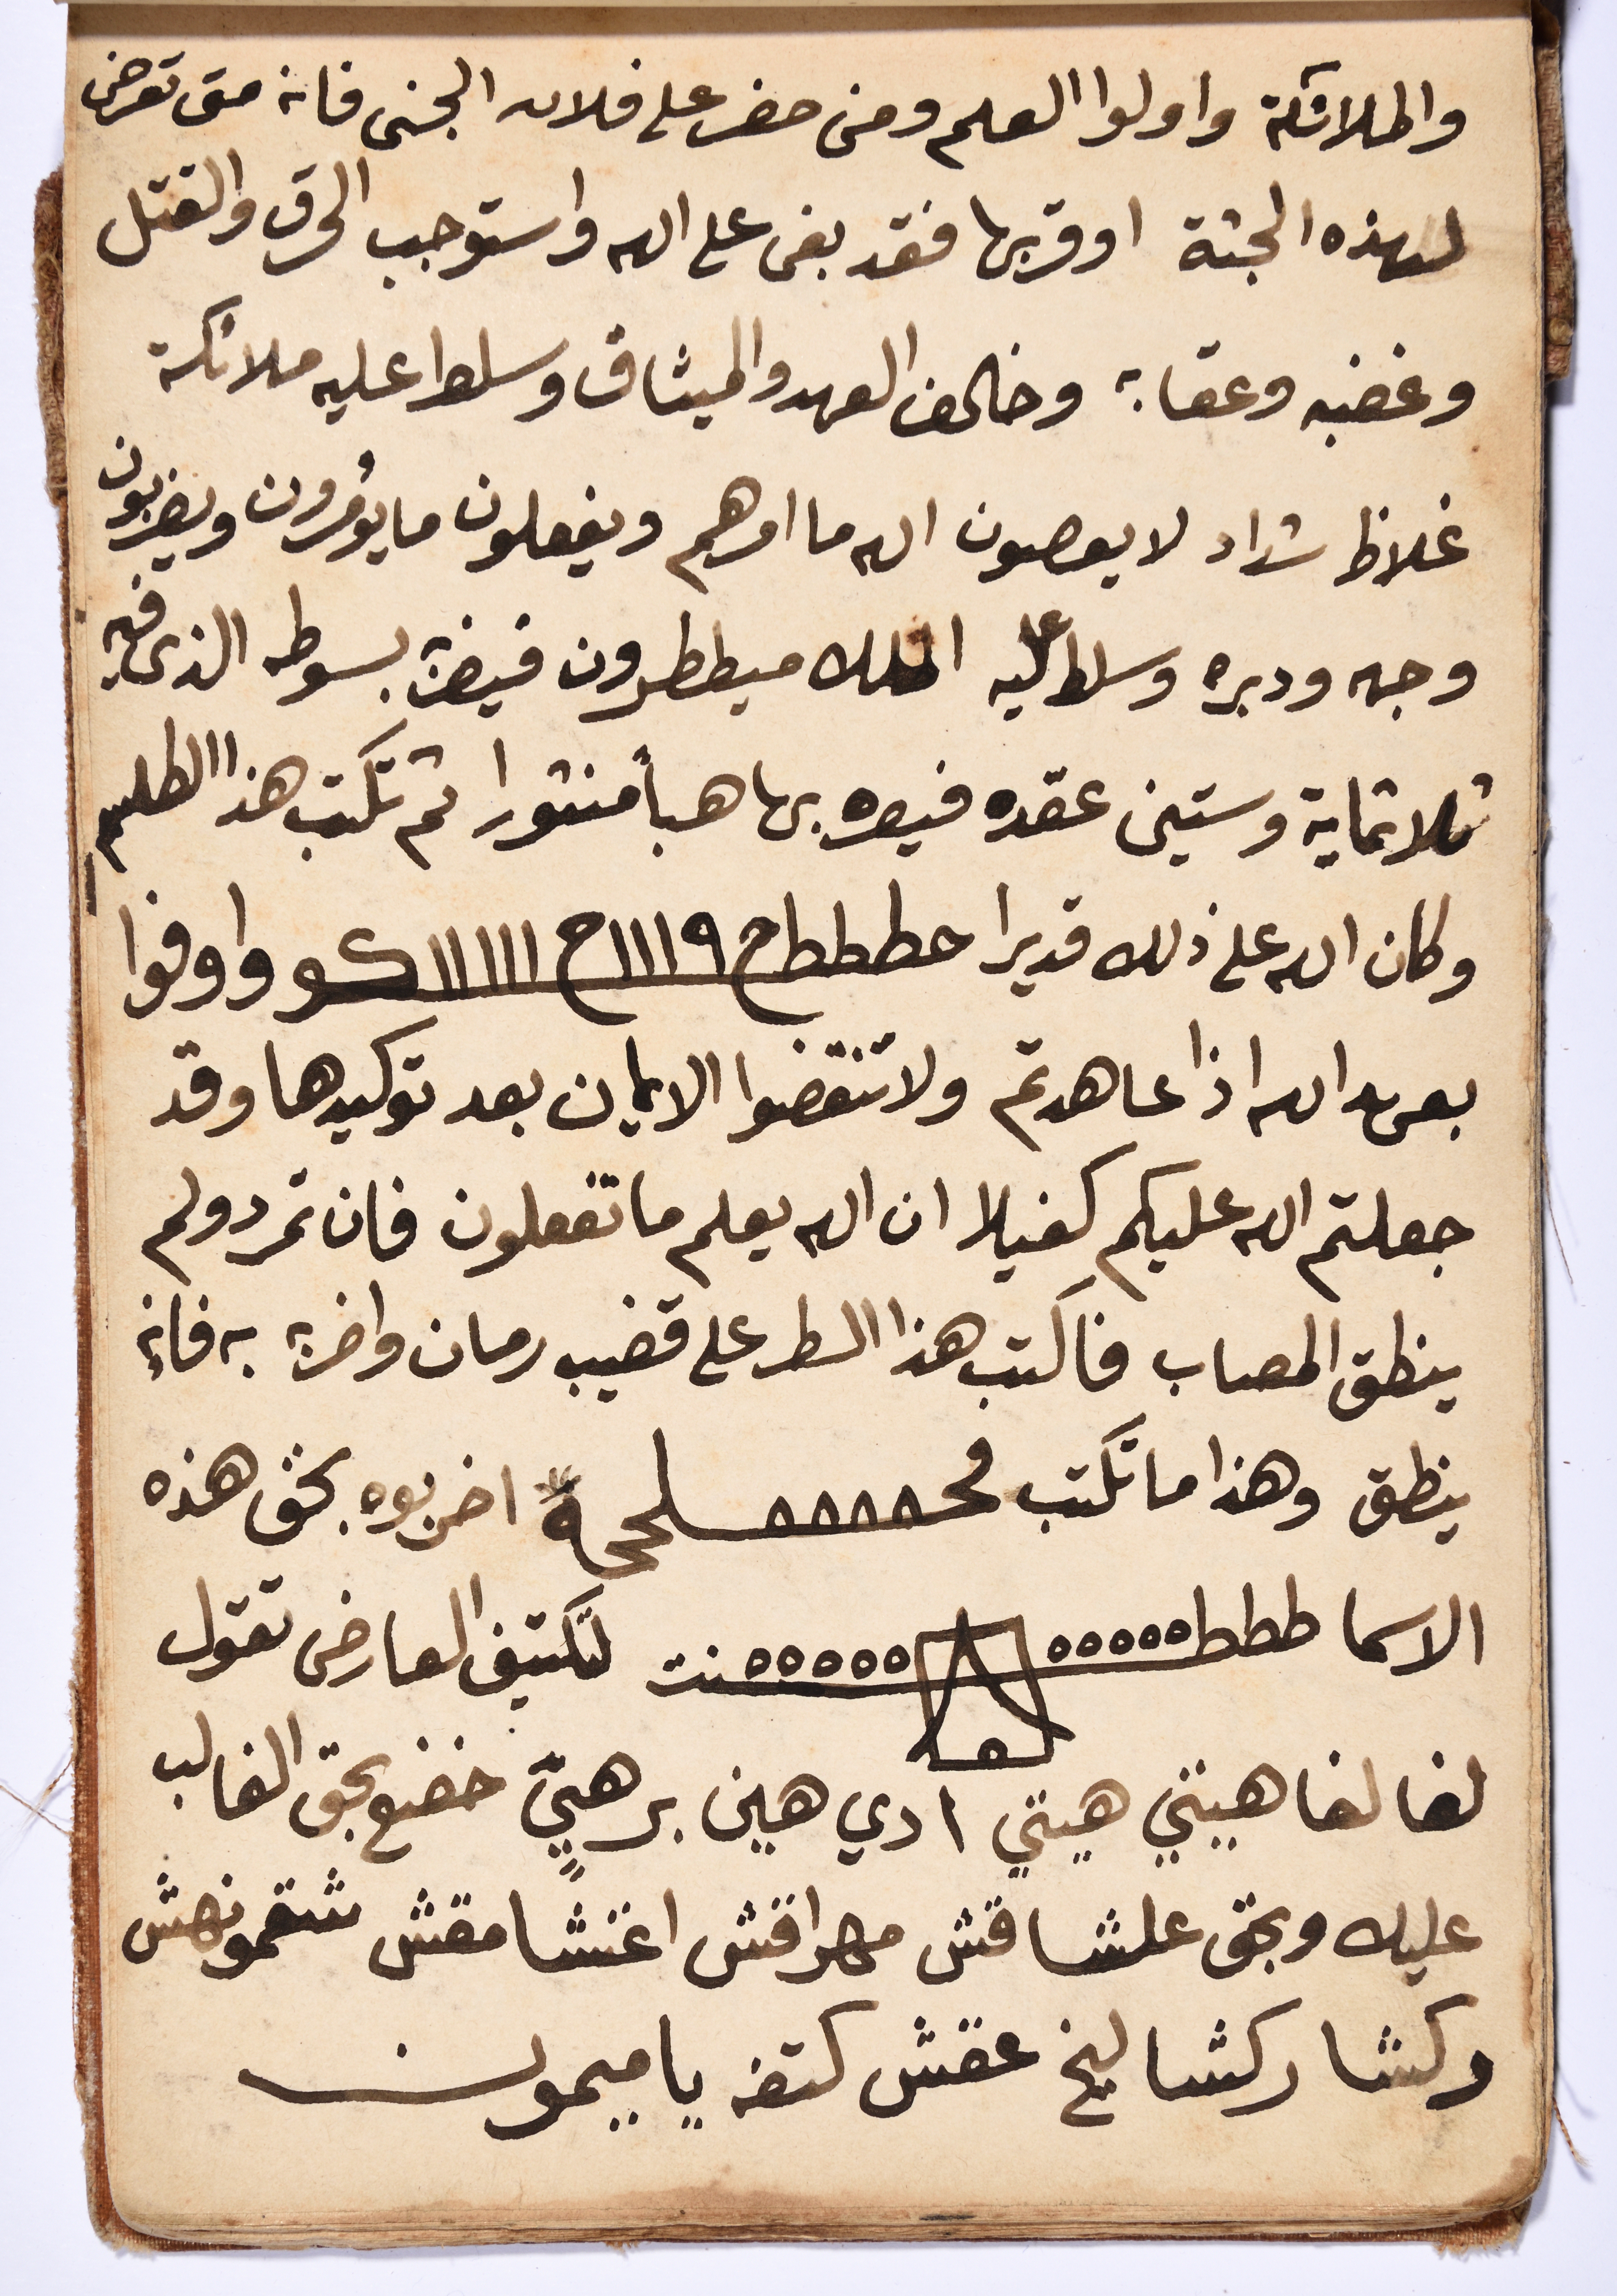 والملائكة واولوا العلم ومن حضر على فلان الجنى فانه متى تعرض
لهذه الجثة او قربها فقد بغى على الله واستوجب الحرق والقتل
وغضبه وعقابه وخالف العهد والميثاق وسلط عليه ملائكة
غلاظ شداد لا يعصون الله ما امرهم ويفعلون ما يؤمرون ويضربون
وجهه ودبره وسلط عليه الملك ميططرون فيضربه بسوطه الذى فيه
ثلاثماية وستين عقده فيصيره بها هبأ منثورا ثم تكتب هذا الطلسم
وكان الله على ذلك قديرا حططططح ١١١٩ح ١١١١١كو واوفوا
بعهد الله اذا عاهدتم ولا تنقضوا الايمان بعد توكيدها وقد
جعلتم الله عليكم كفيلا ان الله يعلم ما تفعلون فان تمرد ولم
ينطق المصاب فاكتب هذا السطر على قضيب رمان واضربه به فانه
ينطق وهذا ما تكتب اضربوه بحق هذه
الاسما طططط ٥٥٥٥٥ ٥٥٥٥٥ لتكتيف العارض تقول
لغا لغا هيتي هيتي ادي هين برهيّ خضع بحق الغالب
عليك وبحق علشاقش مهراقش اغنشا مقش شقمونهش
ركشا ركشا ليخ عقش كتفه يا ميمون